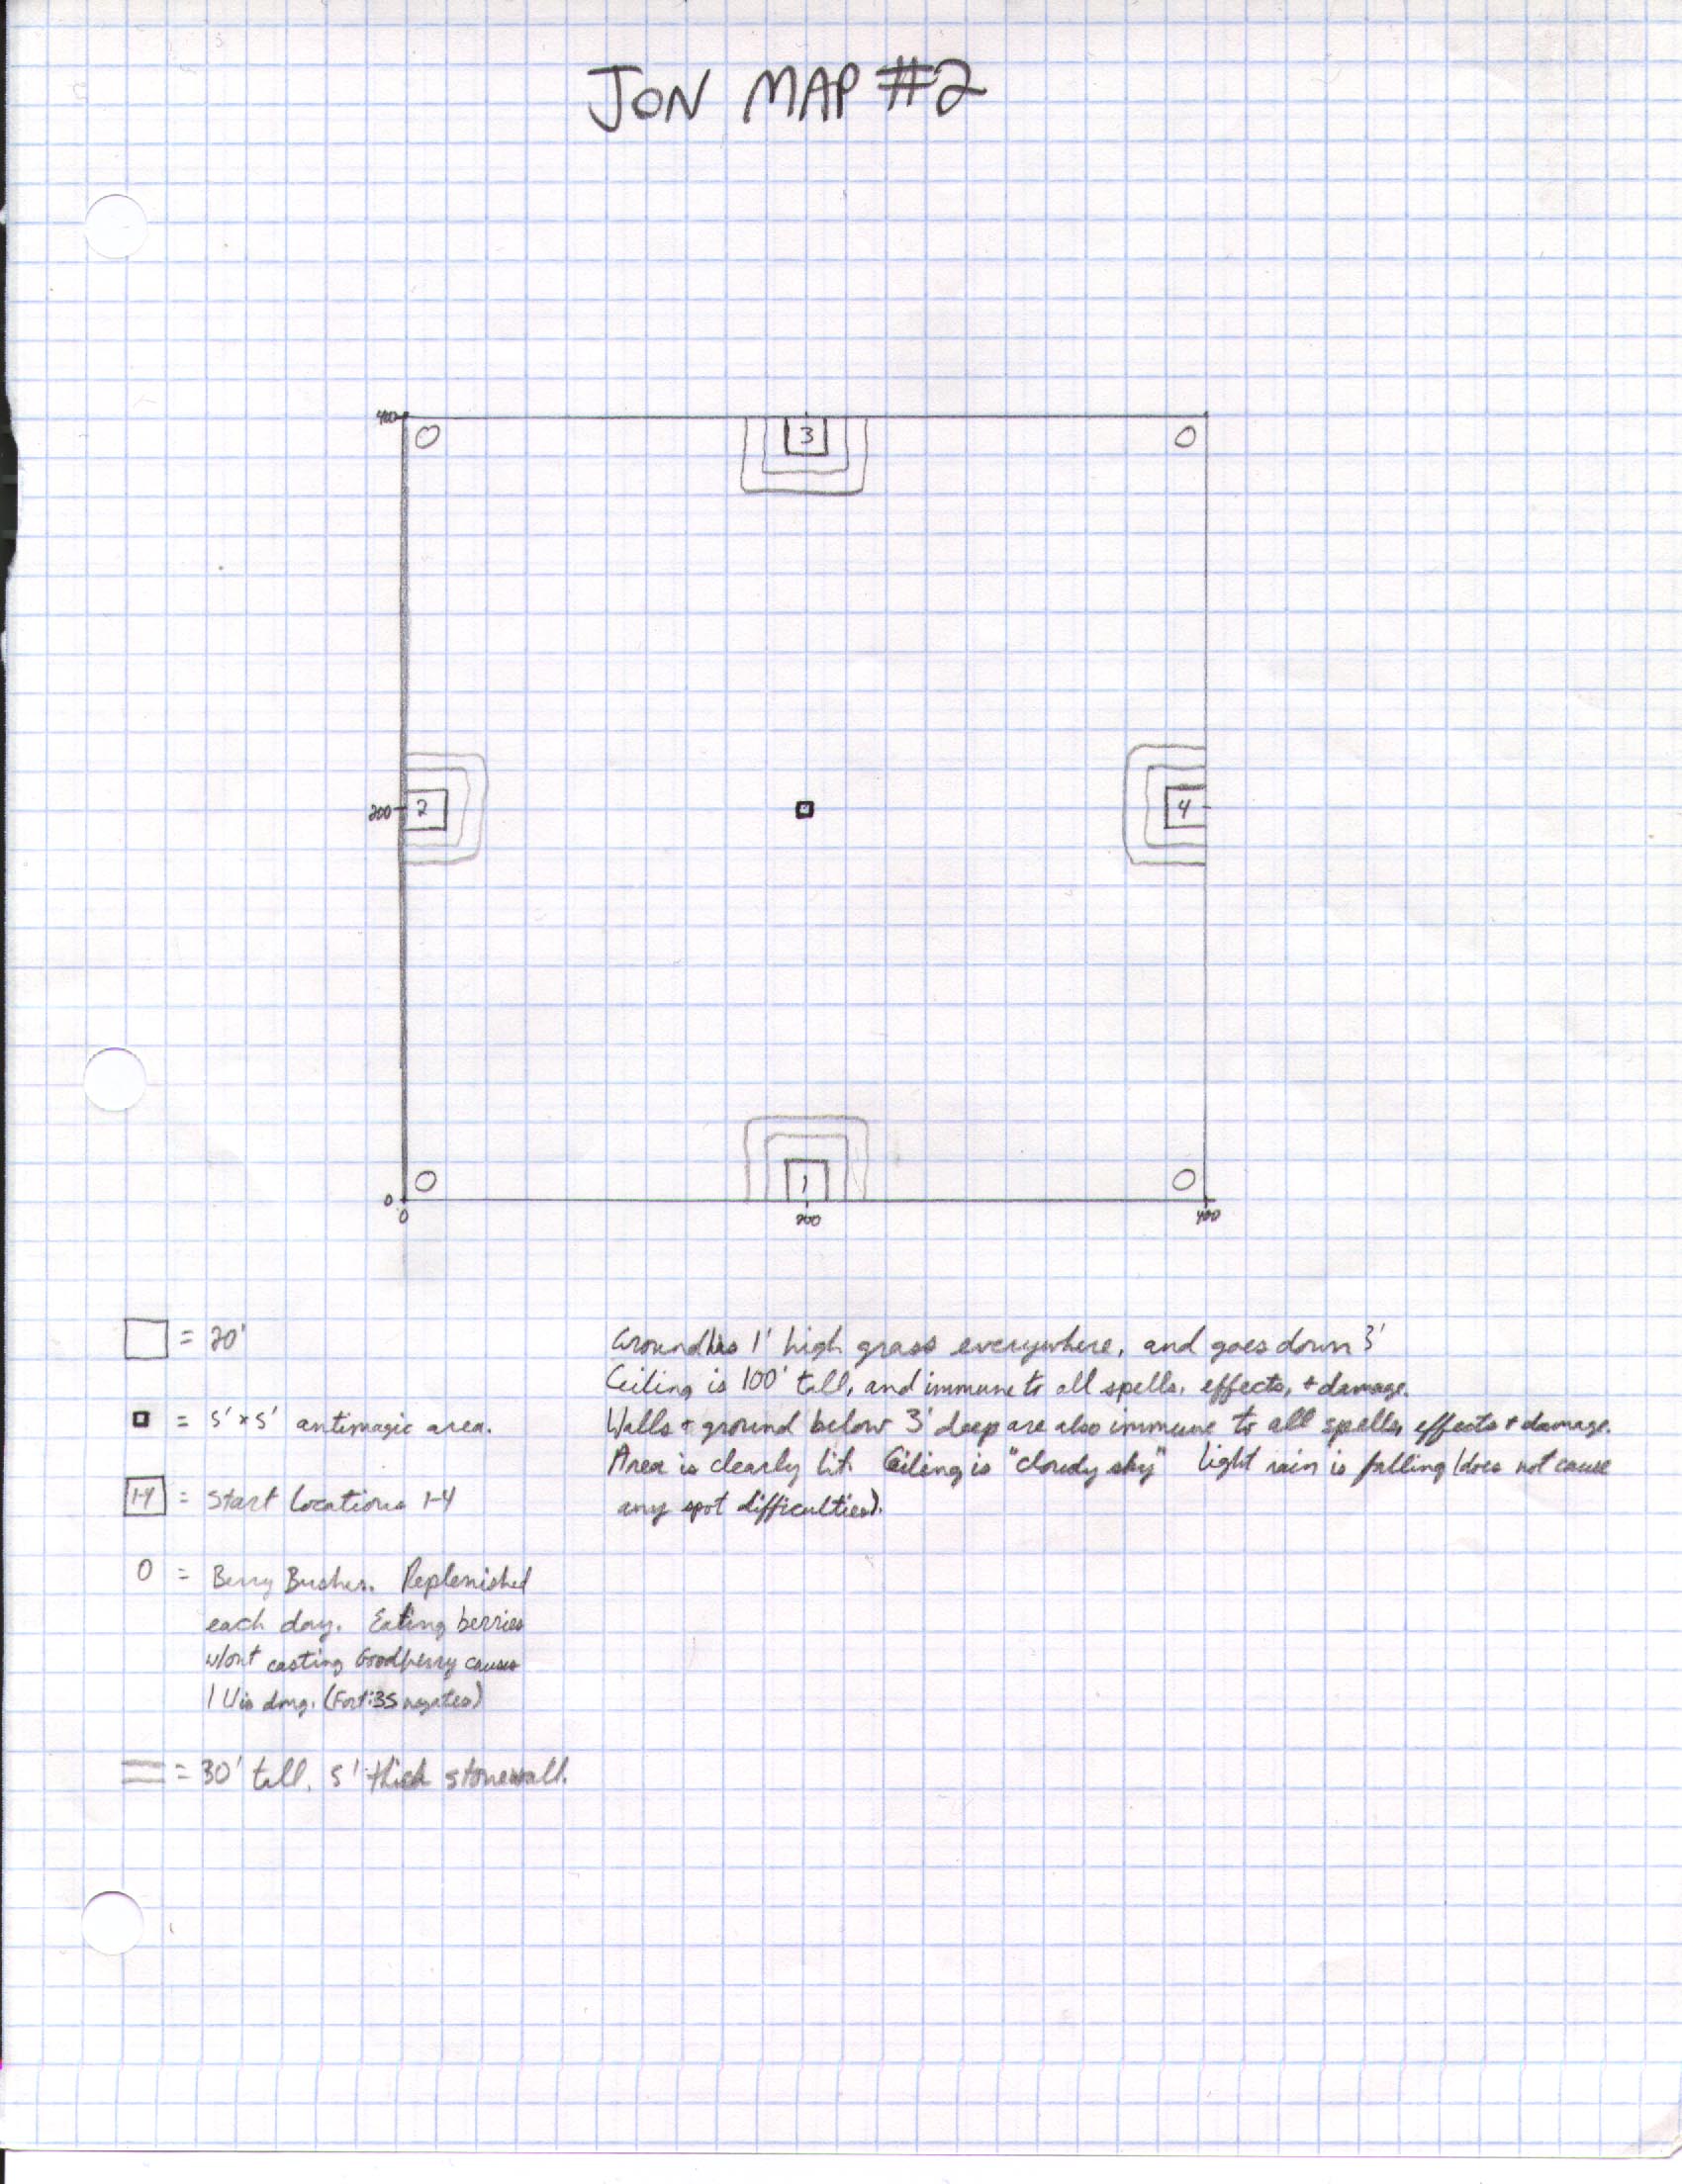 JON MAP #2
400
3
200
2
4
1
0
0
200
400
= 20'
= 5' x 5' antimagic area.
1-4 = Start Locations 1-4
O = Berry Bushes. Replenished
each day. Eating berries
w/out casting Goodberry causes
1 Vis dmg. (Fort:35 negates)
= 30' tall, 5' thick stonewall.
Ground has 1' high grass everywhere, and goes down 3'
Ceiling is 100' tall, and immune to all spells, effects, + damage.
Walls + ground below 3' deep are also immune to all spells, effects + damage.
Area is clearly lit. Ceiling is "cloudy sky" Light rain is falling (does not cause
any spot difficulties).